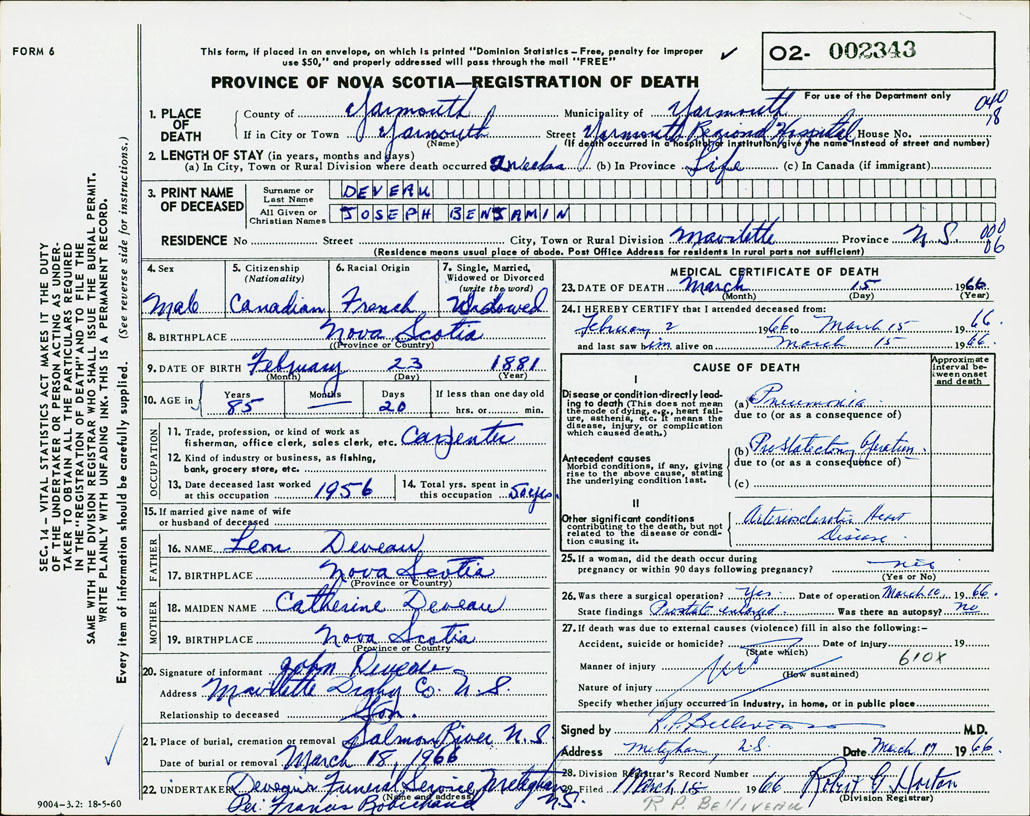 FORM 6
This form, if placed in an envelope, on which is printed "Dominion Statistics – Free, penalty for improper
use $50," and properly addressed will pass through the mail "FREE"
✓
O2- 002343
For use of the Department only
PROVINCE OF NOVA SCOTIA—REGISTRATION OF DEATH
SEC. 14 – VITAL STATISTICS ACT MAKES IT THE DUTY
OF THE UNDERTAKER OR PERSON ACTING AS UNDER-
TAKER TO OBTAIN ALL THE PARTICULARS REQUIRED
IN THE "REGISTRATION OF DEATH" AND TO FILE THE
SAME WITH THE DIVISION REGISTRAR WHO SHALL ISSUE THE BURIAL PERMIT.
WRITE PLAINLY WITH UNFADING INK. THIS IS A PERMANENT RECORD.
Every item of information should be carefully supplied. (See reverse side for instructions.)
1. PLACE OF DEATH
County of Yarmouth Municipality of Yarmouth 040
18
If in City or Town Yarmouth Street Yarmouth Regional Hospital House No.
(Name) (If death occurred in a hospital or institution, give the name instead of street and number)
2. LENGTH OF STAY (in years, months and days)
(a) In City, Town or Rural Division where death occurred 2 weeks (b) In Province Life (c) In Canada (if immigrant)
3. PRINT NAME OF DECEASED
Surname or Last Name DEVEAU
All Given or Christian Names JOSEPH BENJAMIN
RESIDENCE No Street City, Town or Rural Division Mavilette Province N.S. 000
06
(Residence means usual place of abode. Post Office Address for residents in rural parts not sufficient)
4. Sex
Male
5. Citizenship (Nationality)
Canadian
6. Racial Origin
French
7. Single, Married, Widowed or Divorced (write the word)
Widowed
8. BIRTHPLACE Nova Scotia
(Province or Country)
9. DATE OF BIRTH February 23 1881
(Month) (Day) (Year)
10. AGE in Years 85 Months Days 20 If less than one day old
hrs. or min.
OCCUPATION
11. Trade, profession, or kind of work as
fisherman, office clerk, sales clerk, etc. Carpenter
12. Kind of industry or business, as fishing,
bank, grocery store, etc.
13. Date deceased last worked
at this occupation 1956
14. Total yrs. spent in
this occupation 50 yrs.
15. If married give name of wife
or husband of deceased
FATHER
16. NAME Leon Deveau
17. BIRTHPLACE Nova Scotia
(Province or Country)
MOTHER
18. MAIDEN NAME Catherine Deveau
19. BIRTHPLACE Nova Scotia
(Province or Country)
20. Signature of informant John Deveau
Address Mavilette Digby Co. N.S.
Relationship to deceased Son.
21. Place of burial, cremation or removal Salmon River N.S.
Date of burial or removal March 18, 1966
22 UNDERTAKER Deveau's Funeral Service Meteghan N.S.
(Name and address)
Per: Francis Robichaud
9004–3.2: 18-5-60
MEDICAL CERTIFICATE OF DEATH
23. DATE OF DEATH March 15 1966
(Month) (Day) (Year)
24. I HEREBY CERTIFY that I attended deceased from:
February 2 1966 to March 15 1966.
and last saw him alive on March 15 1966.
CAUSE OF DEATH
Approximate interval between onset and death
I
Disease or condition directly leading to death (This does not mean the mode of dying, e.g., heart failure, asthenia, etc. It means the disease, injury, or complication which caused death.)
(a) Pneumonia
due to (or as a consequence of)
Antecedent causes
Morbid conditions, if any, giving rise to the above cause, stating the underlying condition last.
(b) Prostatectomy Operation
due to (or as a consequence of)
(c)
II
Other significant conditions
contributing to the death, but not related to the disease or condition causing it.
Arteriosclerotic Heart
Disease
25. If a woman, did the death occur during
pregnancy or within 90 days following pregnancy?
(Yes or No)
26. Was there a surgical operation? Yes. Date of operation March 10, 1966.
State findings Prostate enlarged Was there an autopsy? No
27. If death was due to external causes (violence) fill in also the following:–
Accident, suicide or homicide? Date of injury 19
(State which) 610X
Manner of injury
(How sustained)
Nature of injury
Specify whether injury occurred in industry, in home, or in public place
Signed by R.P. Belliveau M.D.
Address Meteghan, N.S. Date March 17 1966.
28. Division Registrar's Record Number
29. Filed March 18 1966 Robert G Horton
(Division Registrar)
R P. BELLIVEAU
✓